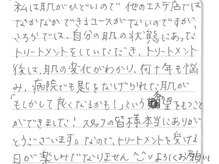 私は肌がひどいので 他のエステ店では
なかなかできるコースがないのですが、
こちらでは、自分の肌の状態にあった
トリートメントをしていただき、トリートメント
後は、肌の変化がわかり、何十年も悩
み、病院でも見をなげられて、肌が
「もしかして良くなるかも!」という希望をもつこと
ができました! スタッフの皆様本当にありが
とうございます。なので、トリートメントを受ける
日が楽しみでなりません よろしくお願い